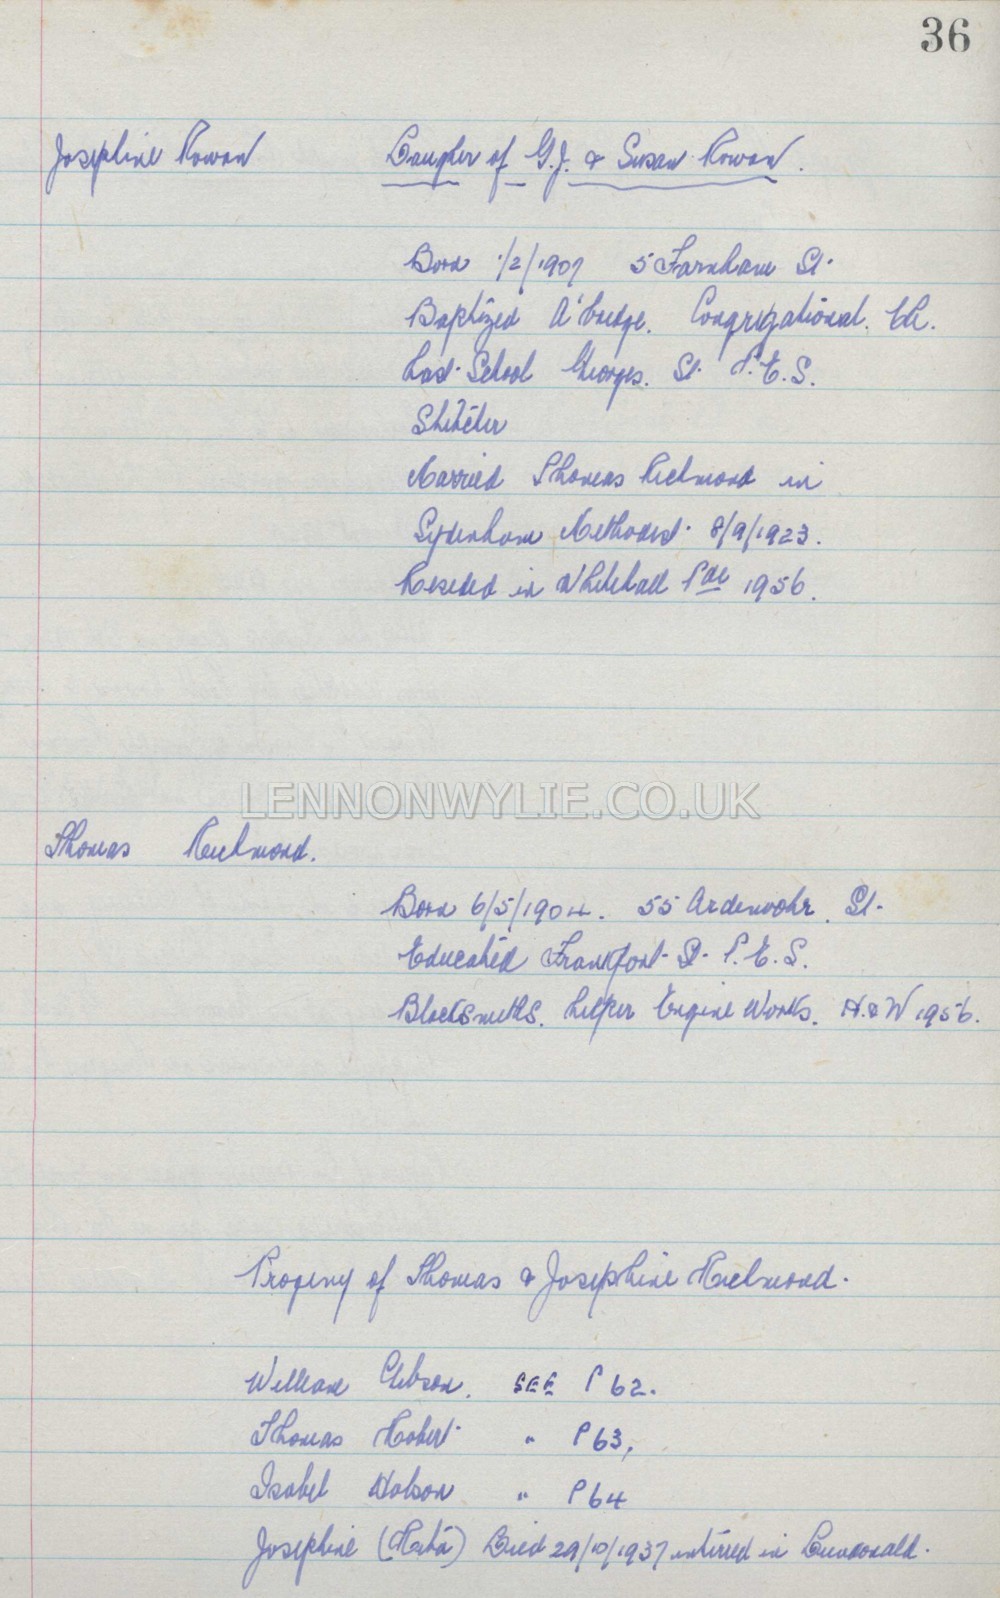 36
Josephine Rowan Daugher of G.J. & Susan Rowan.
Born 1/2/1907 5 Farnham St.
Baptized A'bridge. Congregational. Ch.
Last School Georges. St. P.E.S.
Stitcher
Married Thomas Richmond in
Sydenham Methodist. 8/9/1923.
Resided in Whitehall Pde 1956.
LENNONWYLIE.CO.UK
Thomas Richmond.
Born 6/5/1904. 55 Ardenvohr. St.
Educated Frankfort St. P.E.S.
Blacksmiths. helper Engine Works. H.&W 1956.
Progeny of Thomas & Josephine Richmond.
William Gibson. SEE P 62.
Thomas Robert " P 63,
Isabel Hobson " P 64
Josephine (Reta) Died 29/10/1937 interred in Dundonald.